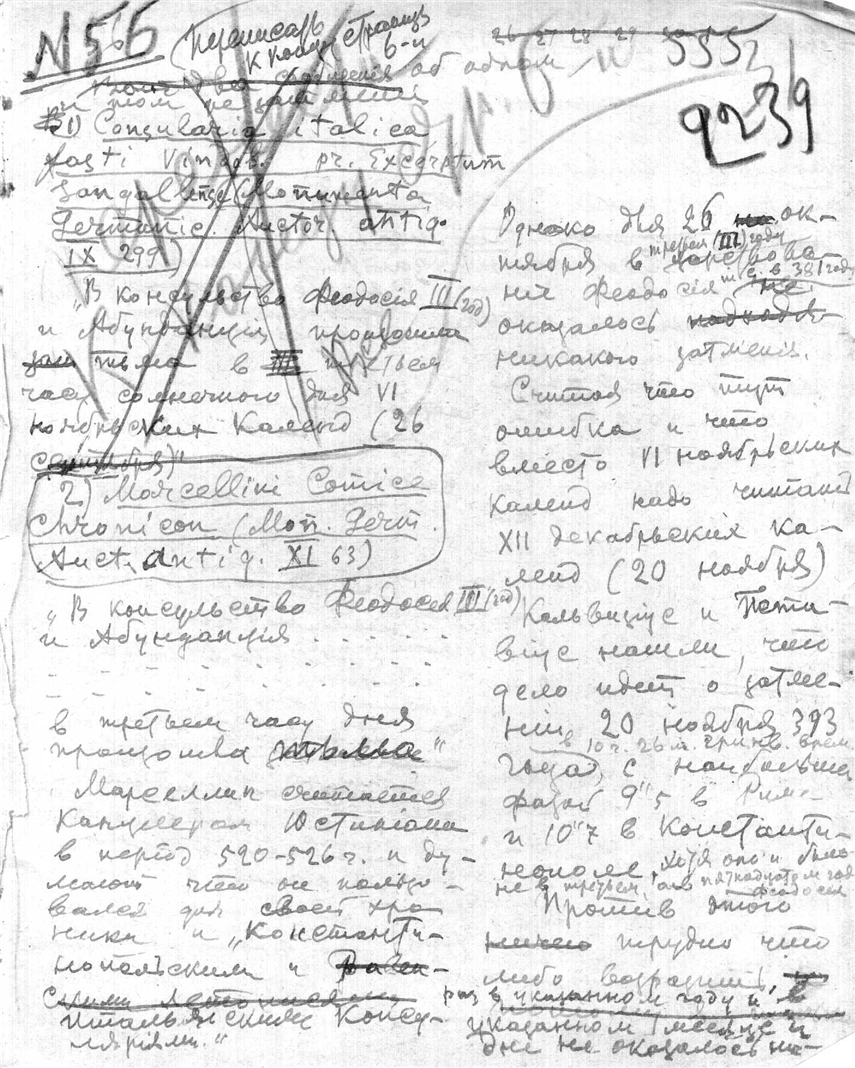 N 56
(Переписать
к концу страницы
6-и
26 27 28 29 5552
9239
об одном
и том же затмении
1) Consularia italica
fasti Vindob. pr. Excerptum
Sangallense (Monumenta
Germanic. Auctor. antiq.
IX 299)
„В консульство Феодосія III (год)
и Абунданція произошла
тьма в III третьем
часу солнечного дня VI
ноябрьских Календ (26
2) Marcellini Comice
Chronicon (Mon. Germ.
Auct. antiq. XI 63)
„В консульство Феодосія III (год)
и Абунданція . . . . .
. . . . . . . . .
. . . . . . . . .
в третьем часу дня
произошла тьма“
Марселлин считается
Канцлером Юстиніана
в період 520-526 г. и ду-
мают что он пользо-
вался для своей хро
ники и „Константи-
нопольским и
Итальянскими Консу-
ляріями.“
Однако для 26 ок-
тября в третьем (III) году
царствова-
нія Феодосія т. е. в 381 году не
оказалось
никакого затменія.
Считая что тут
ошибка и что
вместо VI ноябрьских
календ надо читать
XII декабрьских ка-
ленд (20 ноября)
Кальвизіус и Пета-
віус нашли, что
дело идет о затме-
ніи 20 ноября 393
в 10 ч. 26 м. гринв. врем.
года, с наибольшей
фазой 9"5 в Риме
и 10"7 в Константи-
нополе, хотя оно и было
не в третьем, а в пятнадцатом году
Феодосія
Против этого
трудно что
либо возразить
раз в указанном году и в
указанном месяце и
дне не оказалось ни-